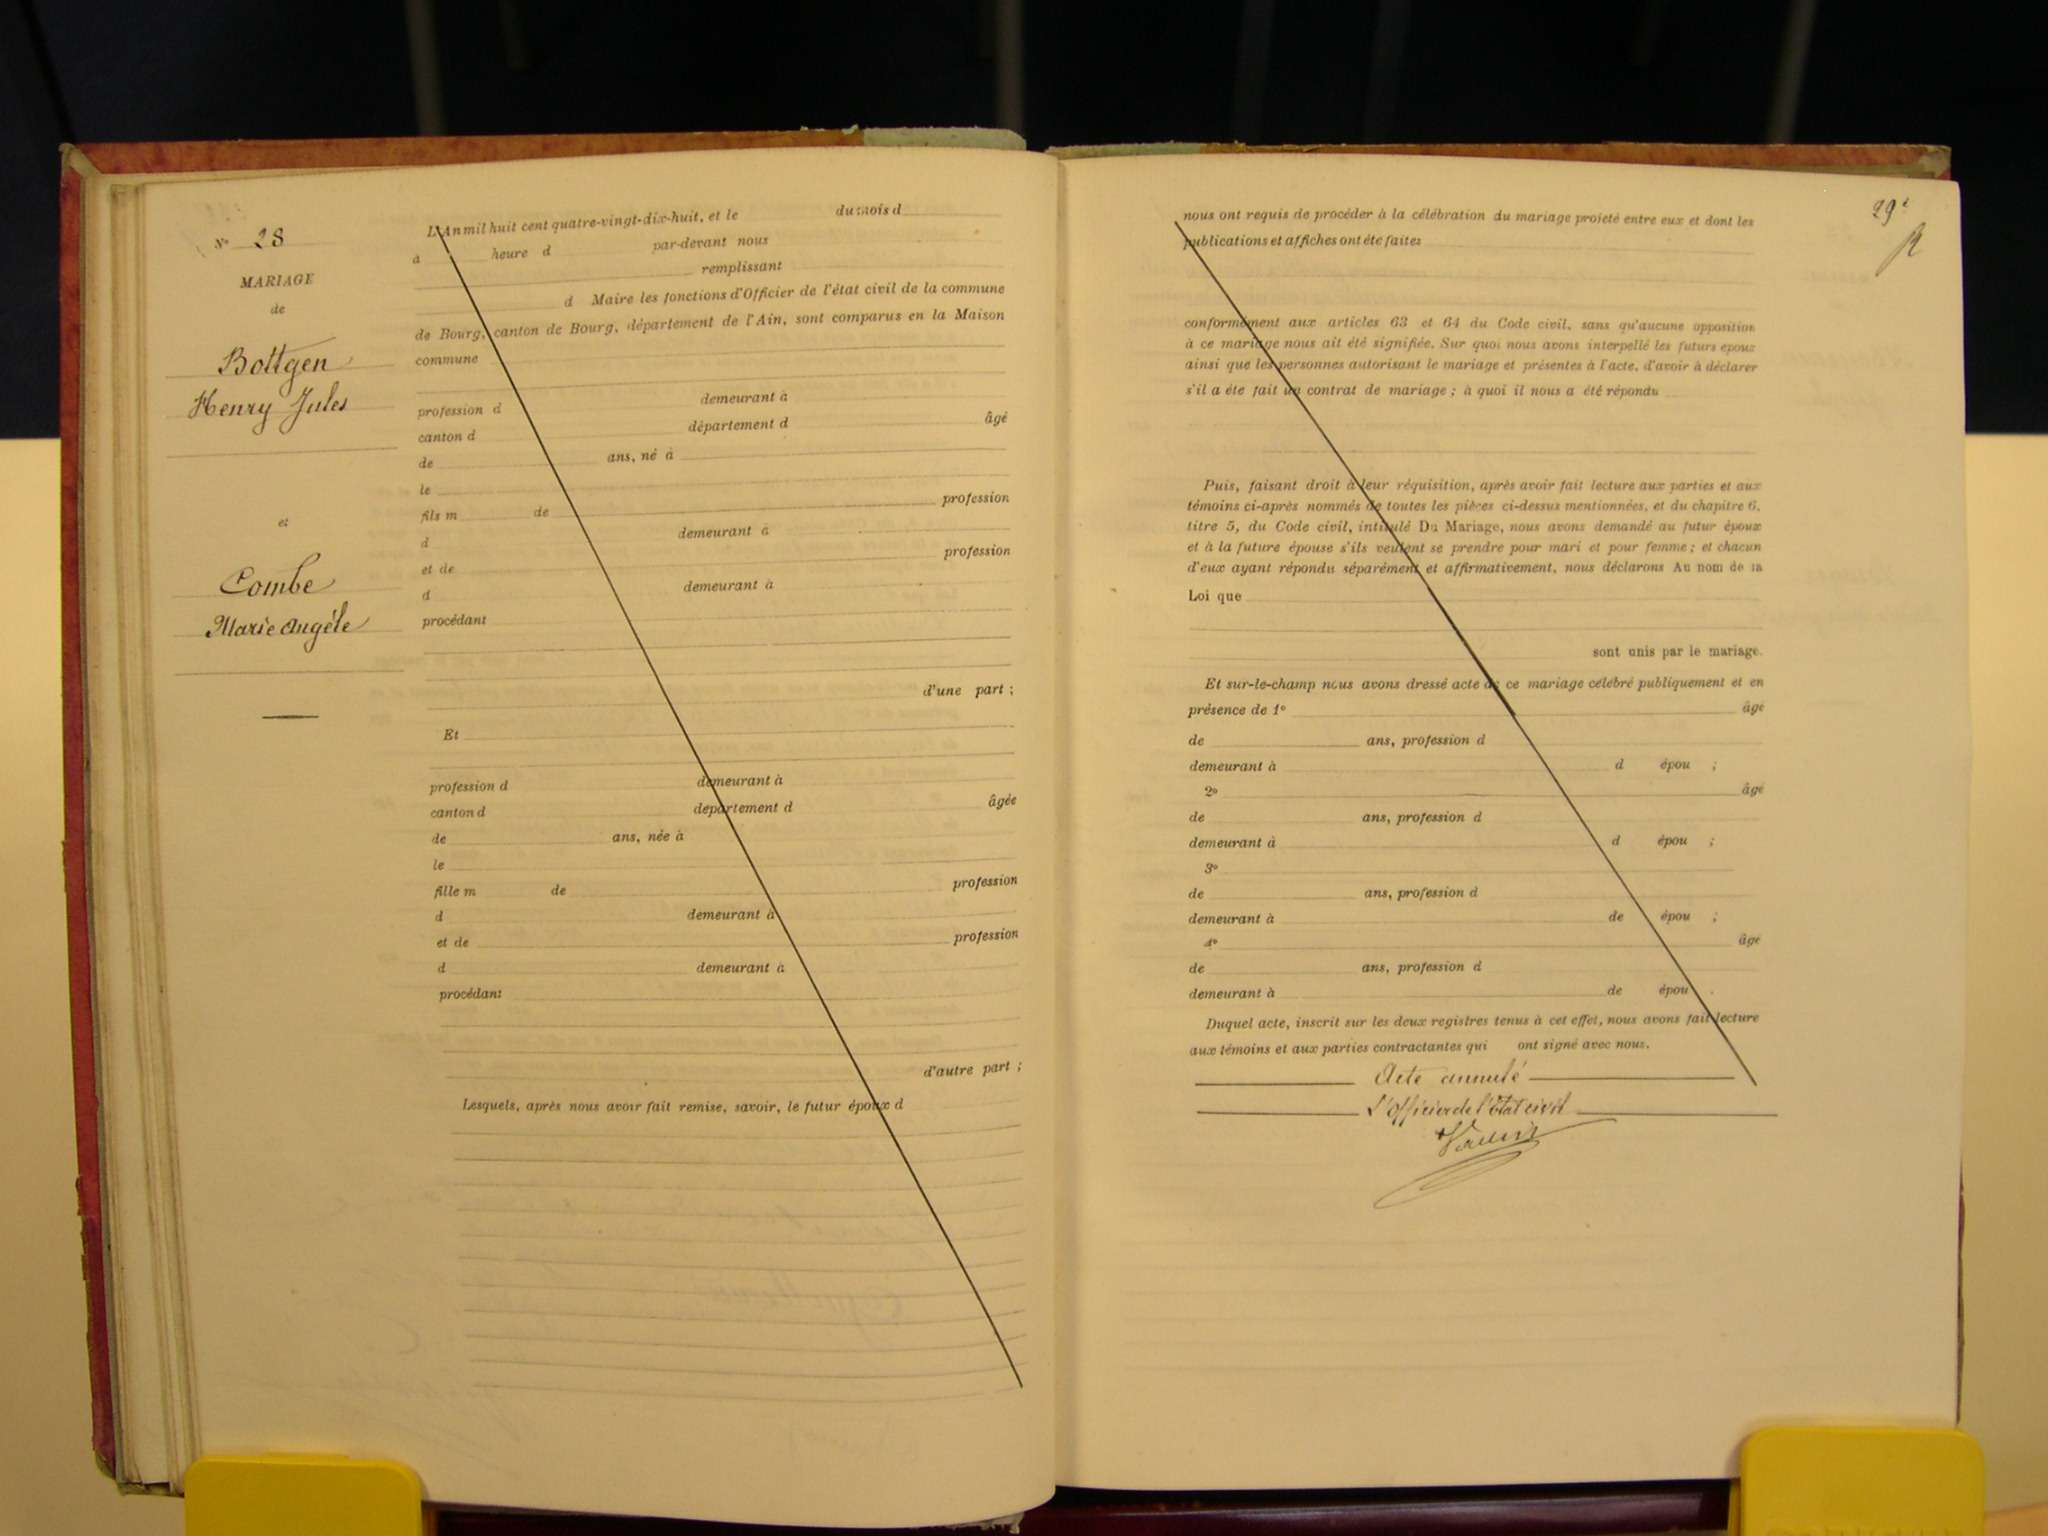 N° 28
MARIAGE
de
Bottgen
Henry Jules
et
Combe
Marie Angèle
L'An mil huit cent quatre-vingt-dix-huit, et le du mois d
à heure d par-devant nous
remplissant
d Maire les fonctions d'Officier de l'état civil de la commune
de Bourg, canton de Bourg, département de l'Ain, sont comparus en la Maison
commune
profession d demeurant à
canton d département d âgé
de ans, né à
le
fils m de profession
d demeurant à
et de profession
d demeurant à
procédant
d'une part ;
Et
profession d demeurant à
canton d département d âgée
de ans, née à
le
fille m de profession
d demeurant à
et de profession
d demeurant à
procédant
d'autre part ;
Lesquels, après nous avoir fait remise, savoir, le futur époux d
29
nous ont requis de procéder à la célébration du mariage projeté entre eux et dont les
publications et affiches ont été faites
conformément aux articles 63 et 64 du Code civil, sans qu'aucune opposition
à ce mariage nous ait été signifiée. Sur quoi nous avons interpellé les futurs époux
ainsi que les personnes autorisant le mariage et présentes à l'acte, d'avoir à déclarer
s'il a été fait un contrat de mariage ; à quoi il nous a été répondu
Puis, faisant droit à leur réquisition, après avoir fait lecture aux parties et aux
témoins ci-après nommés de toutes les pièces ci-dessus mentionnées, et du chapitre 6,
titre 5, du Code civil, intitulé Du Mariage, nous avons demandé au futur époux
et à la future épouse s'ils veulent se prendre pour mari et pour femme ; et chacun
d'eux ayant répondu séparément et affirmativement, nous déclarons Au nom de la
Loi que
sont unis par le mariage.
Et sur-le-champ nous avons dressé acte de ce mariage célébré publiquement et en
présence de 1° âgé
de ans, profession d
demeurant à d épou ;
2° âgé
de ans, profession d
demeurant à d épou ;
3°
de ans, profession d
demeurant à de épou ;
4° âgé
de ans, profession d
demeurant à de épou .
Duquel acte, inscrit sur les deux registres tenus à cet effet, nous avons fait lecture
aux témoins et aux parties contractantes qui ont signé avec nous.
Acte annulé
L'officier de l'État civil